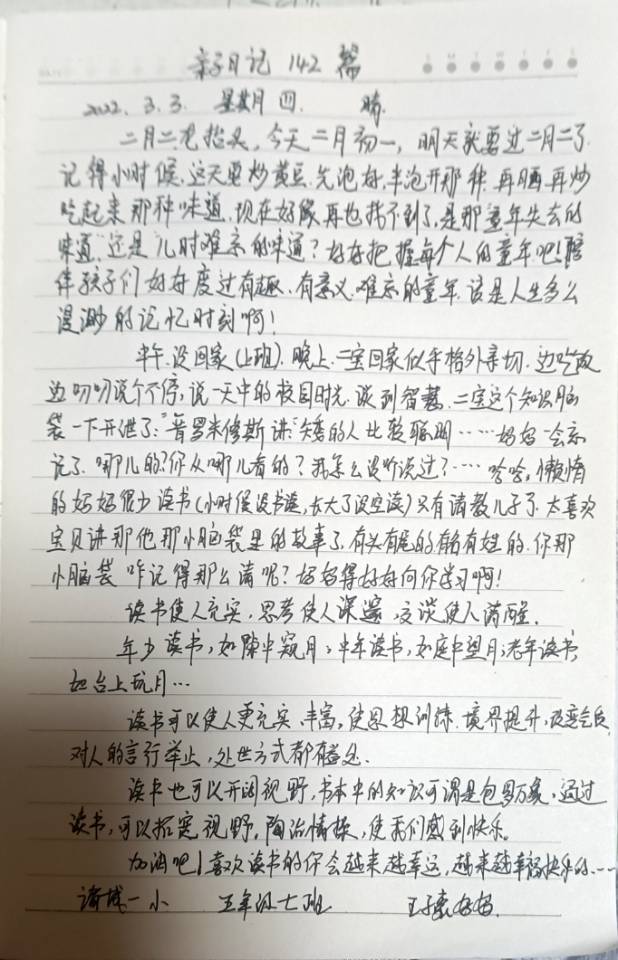 亲子日记 142 篇
2022. 3. 3. 星期四. 晴
二月二龙抬头, 今天二月初一, 明天就要过二月二了.
记得小时候, 这天要炒黄豆. 先泡好, 半泡开那种. 再晒, 再炒
吃起来那种味道. 现在好像再也找不到了, 是那童年失去的
味道, 还是儿时难忘的味道? 好好把握每个人的童年吧! 陪
伴孩子们好好度过有趣, 有意义, 难忘的童年. 该是人生多么
漫妙的记忆时刻啊!
中午没回家(上班). 晚上, 二宝回家似乎格外亲切. 边吃饭
边叨叨说个不停, 说一天中的校园时光. 谈到智慧. 二宝这个知识脑
袋一下开泄了: "普罗米修斯讲: 矮的人比较聪明……妈妈一会忘
记了. 哪儿的? 你从哪儿看的? 我怎么没听说过? …. 哈哈, 懒惰
的妈妈很少读书(小时候没书读, 长大了没空读)只有请教儿子了. 太喜欢
宝贝讲那他那小脑袋里的故事了, 有头有尾的有名有姓的. 你那
小脑袋咋记得那么清呢? 妈妈得好好向你学习啊!
读书使人充实, 思考使人深邃, 交谈使人清醒.
年少读书, 如隙中窥月; 中年读书, 如庭中望月; 老年读书,
如台上玩月…
读书可以使人更充实、丰富, 使思想训练. 境界提升,
对人的言行举止, 处世方式都有益处.
读书也可以开阔视野, 书本中的知识可谓是包罗万象. 通过
读书, 可以拓宽视野, 陶冶情操, 使我们感到快乐.
加油吧! 喜欢读书的你会越来越幸运, 越来越幸福快乐的……
诸城一小 五年级七班 妈妈